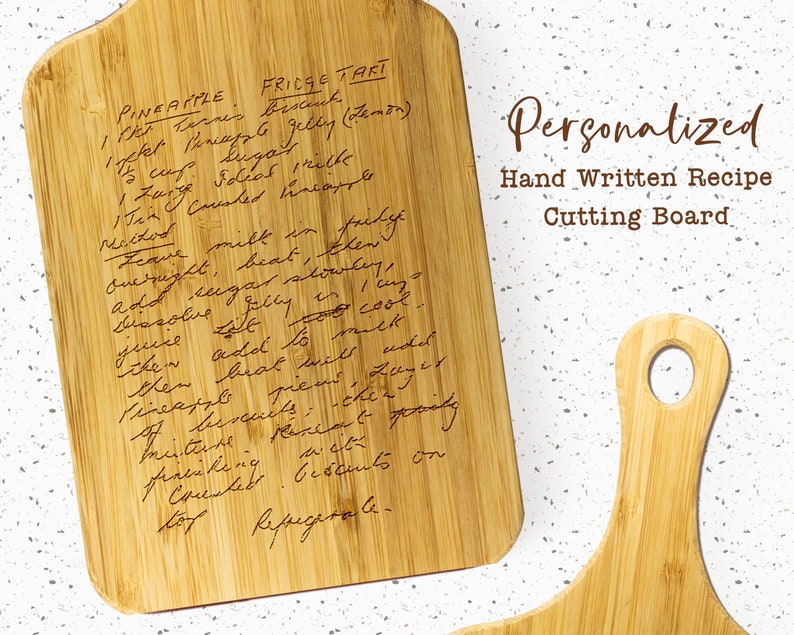 PINEAPPLE FRIDGE TART
1 Pkt Tennis biscuits
1 pkt Pineapple jelly (Lemon)
½ cup sugar
1 Large Ideal milk
1 Tin Crushed Pineapple
Method
Leave milk in fridge
overnight, beat, then
add sugar slowly,
dissolve jelly in 1 cup
juice Let cool.
then add to milk
then beat well add
Pineapple pieces, Layer
of biscuits, then
mixture Repeat
finishing with
Crushed biscuits on
top Refrigerate.
Personalized
Hand Written Recipe
Cutting Board